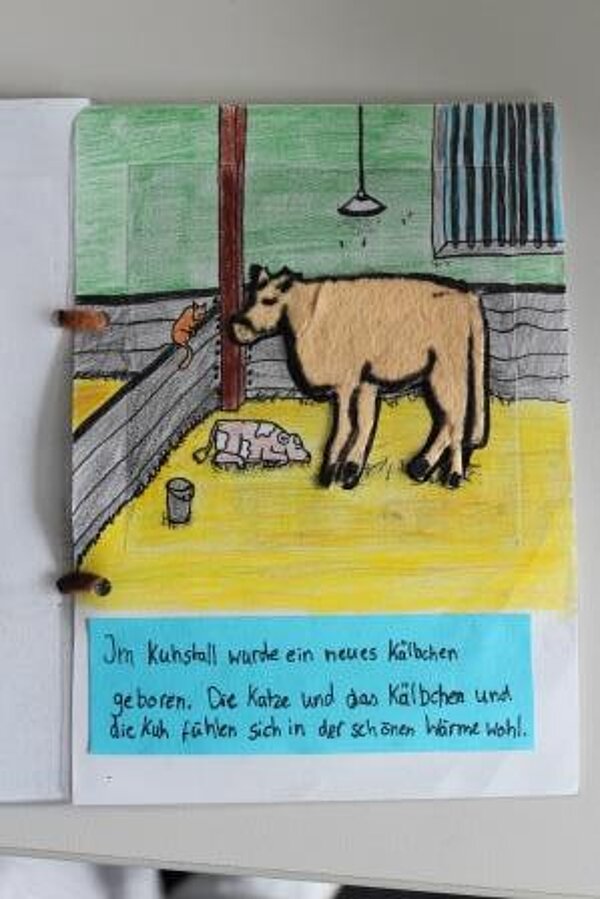 Im Kuhstall wurde ein neues Kälbchen
geboren. Die Katze und das Kälbchen und
die Kuh fühlen sich in der schönen Wärme wohl.